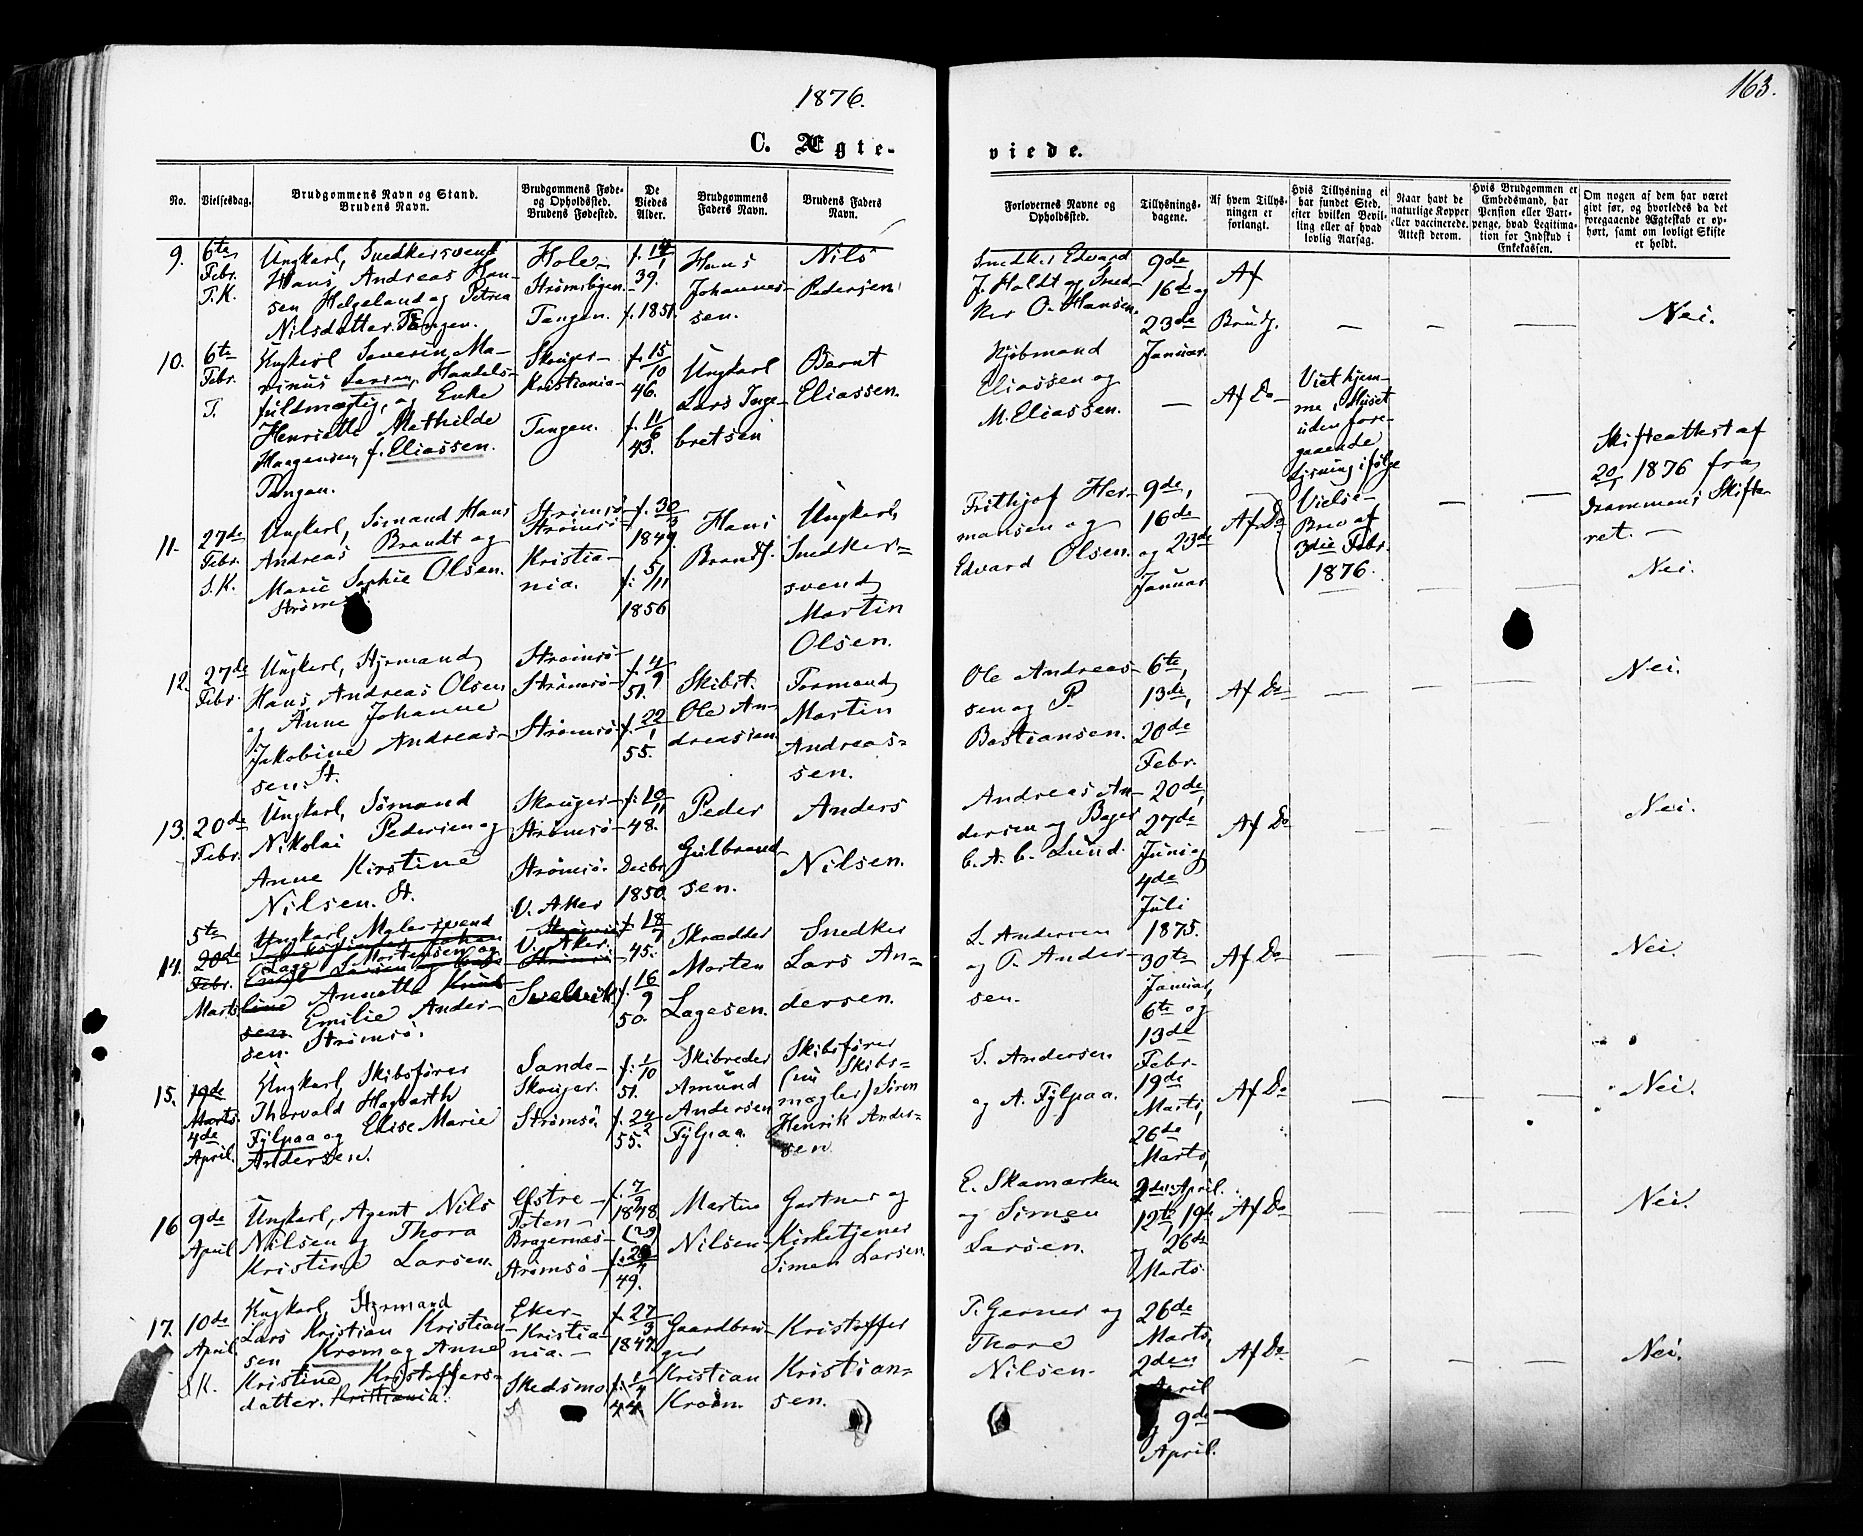 1876.
163.
C. Ægte-
viede.
No.
Vielsesdag.
Brudgommens Navn og Stand.
Brudens Navn.
Brudgommens Føde-
og Opholdssted.
Brudens Fødested.
De
Viedes
Alder.
Brudgommens
Faders Navn.
Brudens Faders
Navn.
Forlovernes Navne og
Opholdssted.
Tillysnings-
dagene.
Af hvem Tillys-
ningen er
forlangt.
Hvis Tillysning ei
har fundet Sted,
efter hvilken Bevil-
ling eller af hvad
lovlig Aarsag.
Naar havt de
naturlige Kopper
eller vaccinerede.
Attest derom.
Hvis Brudgommen er
Embedsmand, har
Pension eller Vart-
penge, hvad Legitima-
tion for Indskud i
Enkekassen.
Om nogen af dem har været
givt før, og hvorledes da det
foregaaende Ægteskab er op-
hørt, samt om lovligt Skifte
er holdt.
9.
6te
Febr.
T.K.
Ungkarl, Snedkersvend
Hans Andreas Han-
sen Helgeland og Petrea
Nilsdatter. Tangen.
Hole-
Strømsbgen.
Tangen.
39.
f. 1851.
Hans
Johannes-
sen.
Nils
Pedersen.
Snedker Edvard
J. Holdt og Sned-
ker O. Hansen.
9de
16de og
23de
Januar.
Af
Brudg.
Nei.
10.
6te
Febr.
T.
Ungkarl Severin Ma-
rinus Larsen, Handels-
fuldmægtig, og Enke
Henriette Mathilde
Haagensen, f. Eliassen.
Tangen.
Skouger-
Kristiania-
Tangen.
f. 15/10
46.
f. 11/6
43.
Ungkarl
Lars Inge-
bretsen
Bernt
Eliassen.
Kjøbmand
Eliassen og
M. Eliassen.
Af Do
Viet hjem-
me i Huset
uden fore-
gaaende
Lysning ifølge
Vielse-
Brev af
3die Febr.
1876.
Skifteattest af
20/1 1876 fra
Drammens Skifte-
ret.
11.
27de
Febr.
S.K.
Ungkarl, Sømand Hans
Andreas Brandt og
Marie Sophie Olsen.
Strømsø
Strømsø-
Kristia-
nia.
f. 30/3
1849.
f. 5/11
1856
Hans
Brandt.
Ungkarl,
Snedker-
svend
Martin
Olsen.
Frithjof Her-
mansen og
Edvard Olsen.
9de,
16de
og 23de
Januar
Af Do
Nei.
12.
27de
Febr.
Ungkarl, Styrmand
Hans Andreas Olsen
og Anne Johanne
Jakobine Andreas-
sen. St.
Strømsø-
Strømsø-
Strømsø
f. 4/9
51.
f. 22/1
55.
Skibst.
Ole An-
dreassen.
Formand
Martin
Andreas-
sen.
Ole Andreas-
sen og P.
Bastiansen.
6te,
13de,
20de
Febr.
Af Do
Nei.
13.
20de
Febr.
Ungkarl, Sømand
Nikolai Pedersen og
Anne Kirstine
Nilsen. St.
Skouger-
Strømsø-
Strømsø.
V. Aker
f. 10/11
48.
Decbr.
1850.
Peder
Gulbrand-
sen.
Anders
Nilsen.
Andreas An-
dersen og Bager
C. A. C. Lund.
20de,
27de
Juni og
4de
Juli
1875.
Af Do
Nei.
14.
5te
20de
Febr.
Marts
Ungkarl,
Annette
Emilie Ander-
sen. Strømsø.
V. Aker.
Strømsø
Svelvik.
f. 18/7
45.
f. 16/9
50.
Skrædder
Morten
Lagesen.
Snedker
Lars An-
dersen.
L. Andersen
og P. Ander-
sen.
30te
Januar,
6te og
13de
Febr.
Af Do
Nei.
15.
19de
Marts.
4de
April.
Ungkarl, Skibsfører
Thorvald Hagbarth
Fylpaa og Elise Marie
Andersen.
Sande-
Skouger.
Strømsø.
f. 1/10
51.
f. 24/2
55.
Skibreder
Amund
Andersen
Fylpaa.
Skibsfører
(nu Skibs-
mægler) Sören
Henrik Ander-
sen.
S. Andersen
og A. Fylpaa.
19de
Marts,
26de
Marts,
2den April.
Af Do
Nei.
16
9de
April
Ungkarl, Agent Nils
Nilsen og Thora
Kristine Larsen.
Østre-
Toten-
Bragernæs-
Strømsø
f. 7/9
1848
49.
Martin
Nilsen
Gartner og
Kirketjener
Simen Larsen.
E. Skamarken
og Simen
Larsen.
12te, 19de
og 26de
Marts
Af Do
Nei.
17.
10de
April.
S.K.
Ungkarl, Styrmand
Lars Kristian Kristian-
sen Krom og Anne
Kristine Kristoffers-
datter. Kristiania.
Eker-
Kristia-
nia.
Skedsmo
f. 27/3
1847.
f. 1/4
44
Gaardbru-
ger
Kristian
Krom.
Kristoffer
Kristian-
sen.
T. Gerner og
Thore
Nilsen.
26de
Marts,
2den
April
9de
April.
Af Do
Nei.